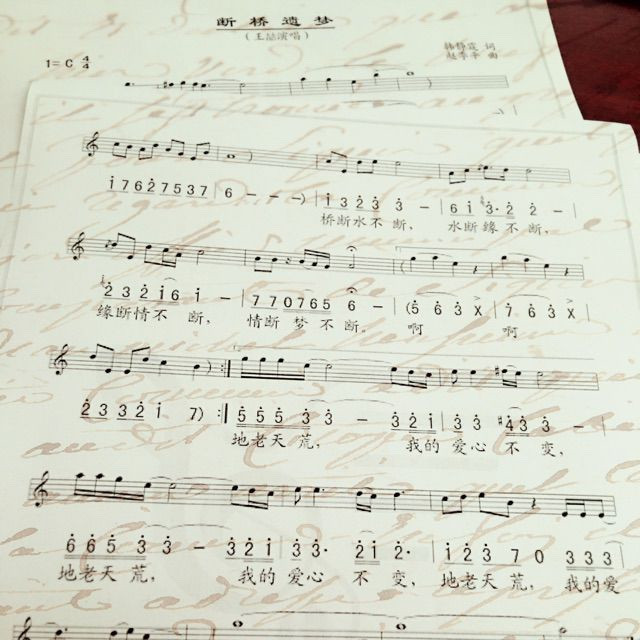 断桥遗梦
(王喆演唱)
韩静霆 词
赵季平 曲
1=C 4/4
i 7 6 2 7 5 3 7 | 6 - - -) | i 3 2 3 3 - | 6 i 3· 2 2 - |
桥断水不断, 水断缘不断,
2 3 2 i 6 i - | 7 7 0 7 6 5 6 - | (5 6 3 X | 7 6 3 X |
缘断情不 断, 情断 梦 不断。 啊 啊
2 3 3 2 i 7) :‖ 5 5 5 3 3 - 3 2 i | 3 3 #4 3 3 - |
地老天 荒, 我的 爱心 不 变,
6 6 5 3 3 - 3 2 i | 3 3· 2 i 2· | i 2 3 7 0 3 3 3 |
地老天 荒, 我的 爱心 不 变, 地老天 荒, 我的爱